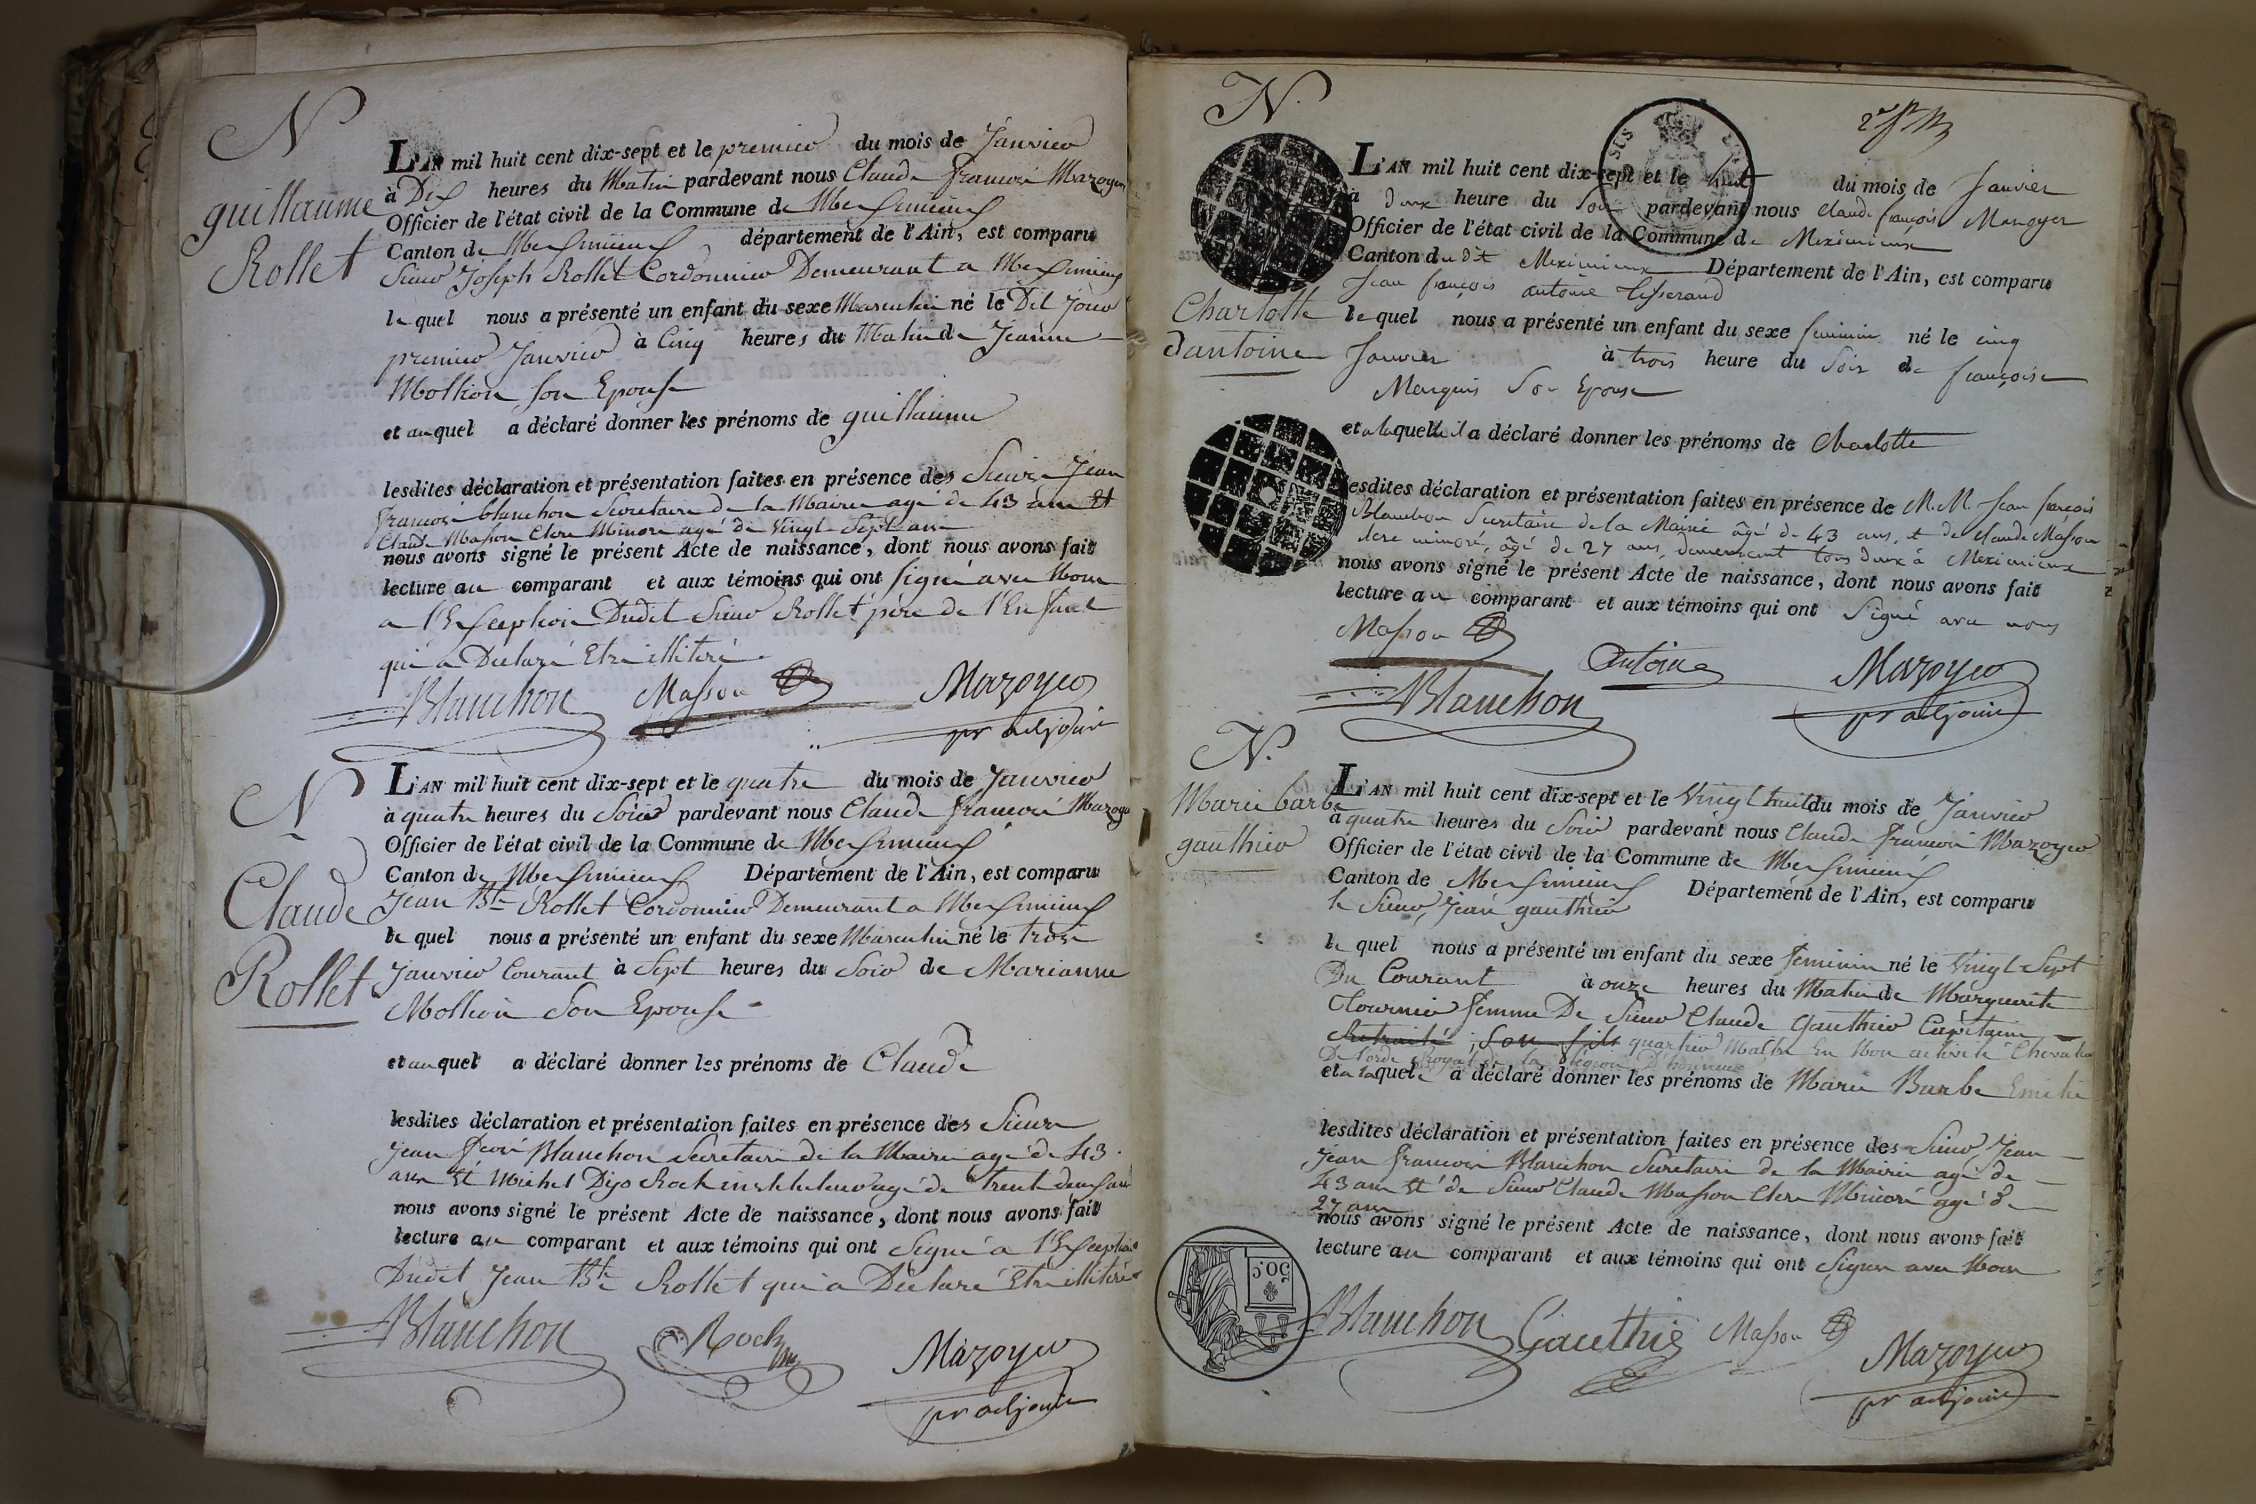 N
guillaume
Rollet
L'AN mil huit cent dix-sept et le premier du mois de Janvier
à Dix heures du Matin pardevant nous Claude François Mazoyer
Officier de l'état civil de la Commune de Meximieux
Canton de Meximieux département de l'Ain, est comparu
Sieur Joseph Rollet Cordonnier Demeurant a Meximieux
lequel nous a présenté un enfant du sexe Masculin né le Dit Jour
premier Janvier à Cinq heures du Matin de Jeanne
Mollion son Epouse
et auquel a déclaré donner les prénoms de guillaume
lesdites déclaration et présentation faites en présence des Sieurs Jean
François blanchon Secretaire de la Mairie agé de 43 ans Et
Claude Masson Clerc Minoré agé de Vingt Sept ans
nous avons signé le présent Acte de naissance, dont nous avons fait
lecture au comparant et aux témoins qui ont signé avec Nous
a l'Exception Dudit Sieur Rollet père de l'Enfant
qui a Déclaré Etre illitéré
Blanchon Masson Mazoyer
pr adjoint
N
Claude
Rollet
L'AN mil huit cent dix-sept et le quatre du mois de Janvier
à quatre heures du Soir pardevant nous Claude François Mazoyer
Officier de l'état civil de la Commune de Meximieux
Canton de Meximieux Département de l'Ain, est comparu
Jean Bte Rollet Cordonnier Demeurant a Meximieux
lequel nous a présenté un enfant du sexe Masculin né le trois
Janvier Courant à Sept heures du Soir de Marianne
Mollion Son Epouse
et auquel a déclaré donner les prénoms de Claude
lesdites déclaration et présentation faites en présence des Sieurs
Jean Blanchon Secretaire de la Mairie agé de 43
ans Et Michel Rock instituteur agé de trente deux ans
nous avons signé le présent Acte de naissance, dont nous avons fait
lecture au comparant et aux témoins qui ont Signé a l'Exception
Dudit Jean Bte Rollet qui a Déclaré Etre illitéré
Blanchon Rock Mazoyer
pr adjoint
N.
Charlotte
d'antoine
L'AN mil huit cent dix-sept et le huit du mois de Janvier
à deux heure du Soir pardevant nous Claude françois Mazoyer
Officier de l'état civil de la Commune de Meximieux
Canton dudit Meximieux Département de l'Ain, est comparu
Jean françois antoine tisserand
lequel nous a présenté un enfant du sexe feminin né le cinq
Janvier à trois heure du Soir de françoise
Marquis Son Epouse
et a laquelle il a déclaré donner les prénoms de Charlotte
lesdites déclaration et présentation faites en présence de M.M. Jean françois
Blanchon Secrétaire de la Mairie âgé de 43 ans, et de Claude Masson
clerc minoré, âgé de 27 ans, demeurant tous deux à Meximieux
nous avons signé le présent Acte de naissance, dont nous avons fait
lecture au comparant et aux témoins qui ont Signé avec nous
Masson antoine Mazoyer
Blanchon pr adjoint
N.
Marie barbe
gauthier
L'AN mil huit cent dix-sept et le Vingt huit du mois de Janvier
à quatre heures du Soir pardevant nous Claude François Mazoyer
Officier de l'état civil de la Commune de Meximieux
Canton de Meximieux Département de l'Ain, est comparu
le Sieur Jean gauthier
lequel nous a présenté un enfant du sexe feminin né le Vingt Sept
Du Courant à onze heures du Matin de Marguerite
femme De Sieur Claude Gauthier Capitaine
Retraité, son fils quartier Maitre En Non activité Chevalier
De l'ordre Royal de la Légion D'honneur
et a laquelle a déclaré donner les prénoms de Marie Barbe Emelie
lesdites déclaration et présentation faites en présence des Sieur Jean
Jean François Blanchon Secretaire de la Mairie agé de
43 ans Et de Sieur Claude Masson Clerc Minoré agé de
27 ans
nous avons signé le présent Acte de naissance, dont nous avons fait
lecture au comparant et aux témoins qui ont Signer avec Nous
50 c
Blanchon Gauthier Masson Mazoyer
pr adjoint